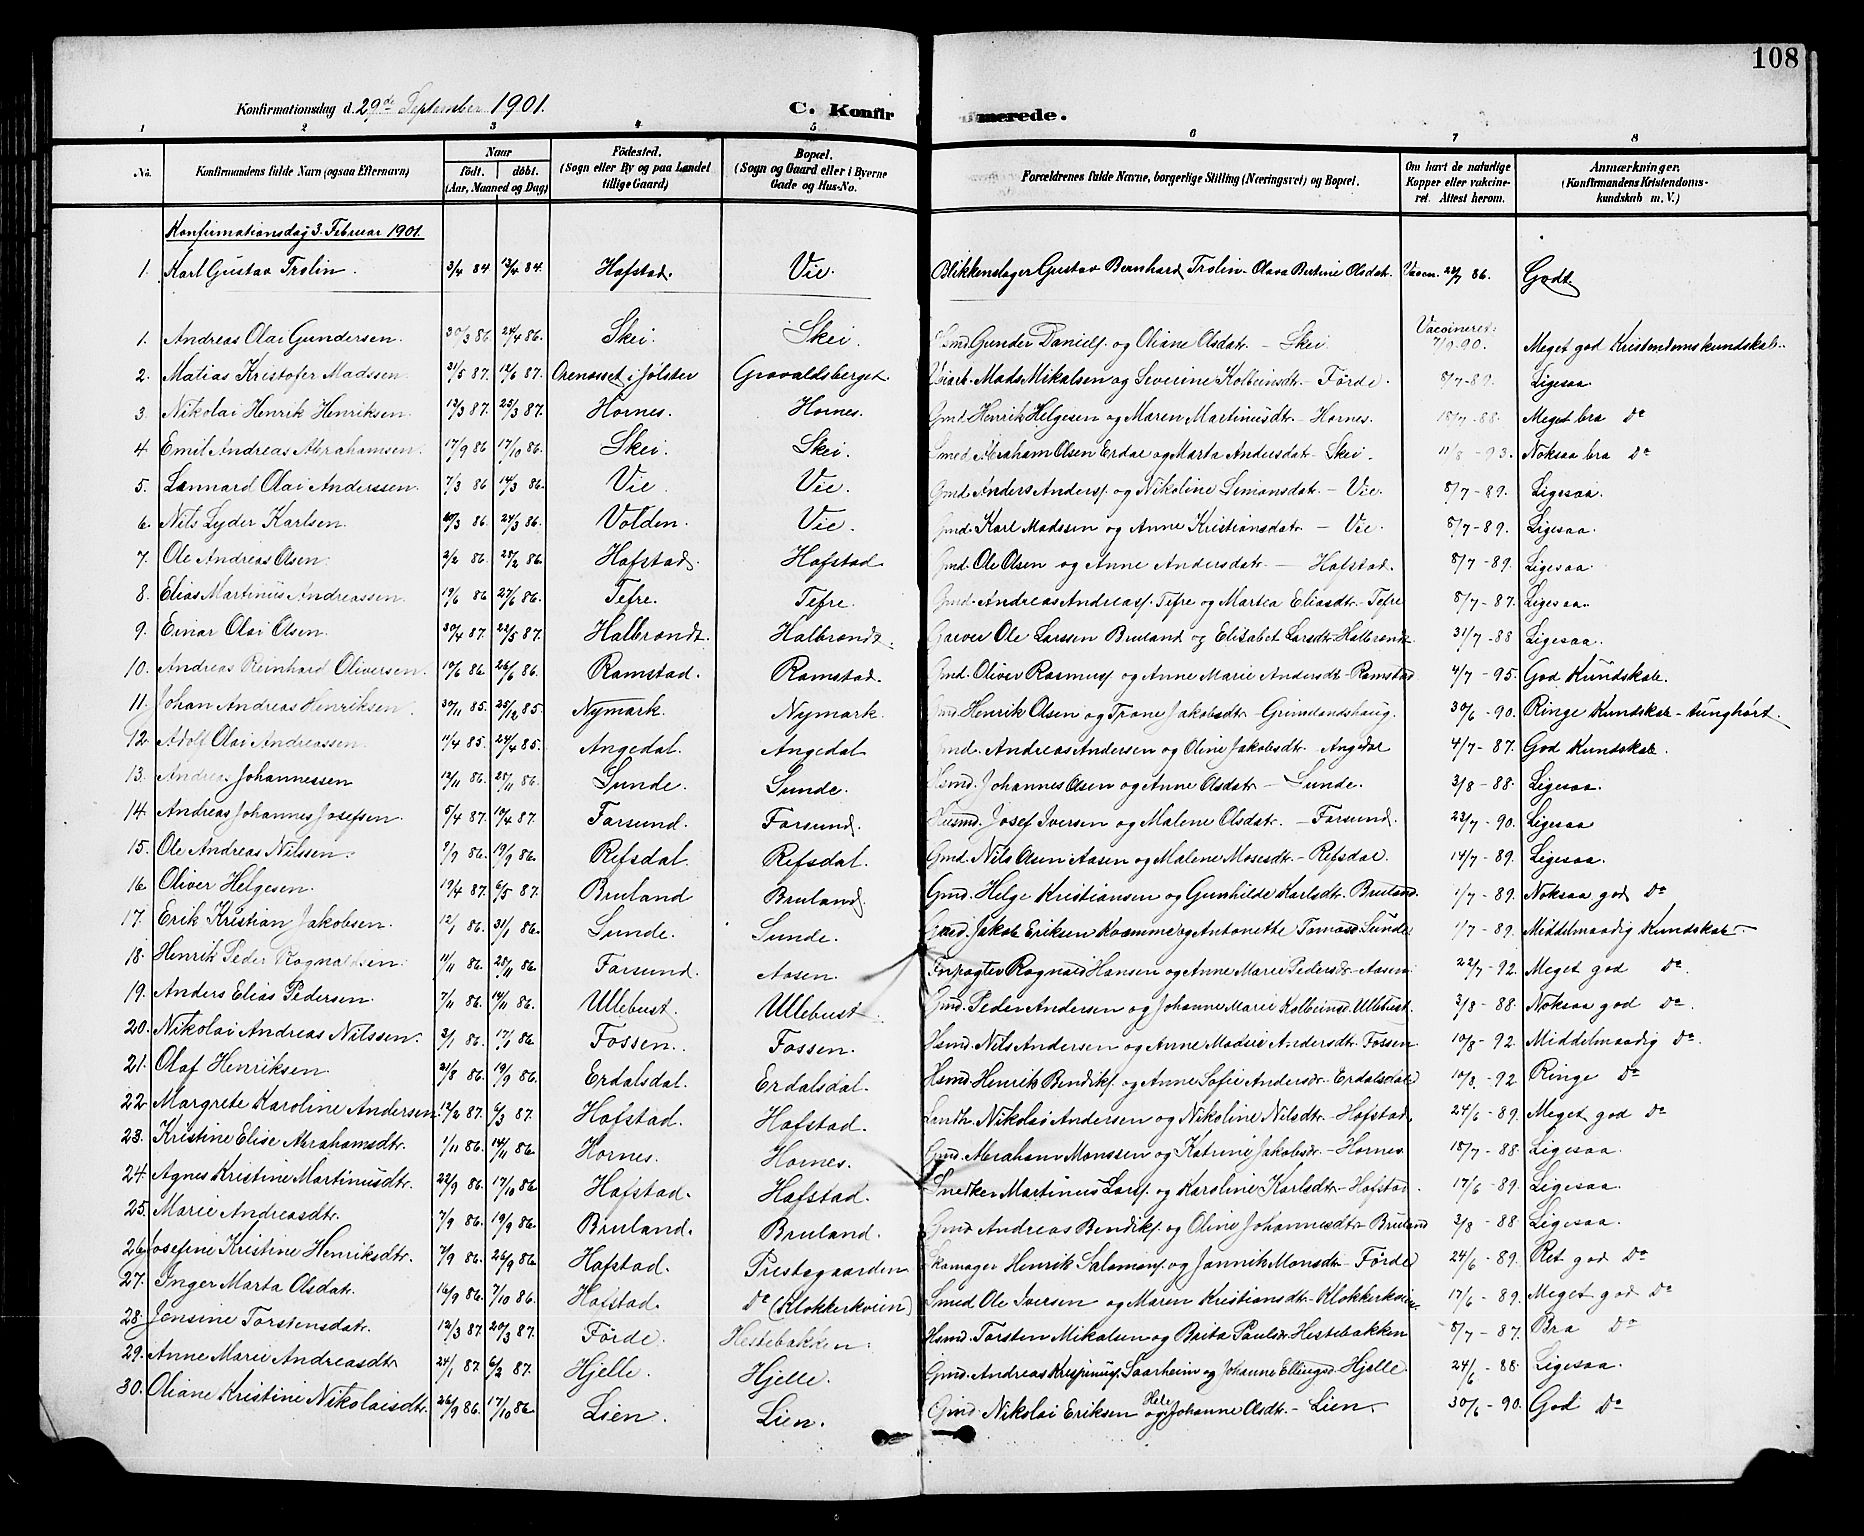 108
Konfirmationsdag d. 29de September 1901. C. Konfirmerede.
1 2 3 4 5 6 7 8
No. Konfirmandens fulde Navn (ogsaa Efternavn) Naar født. døbt. (Aar, Maaned og Dag) Fødested. (Sogn eller By og paa Landet tillige Gaard) Bopæl. (Sogn og Gaard eller i Byerne Gade og Hus-No. Forældrenes fulde Navne, borgerlige Stilling (Næringsvei) og Bopæl. Om havt de naturlige Kopper eller vakcineret. Attest herom. Anmærkninger. (Konfirmandens Kristendomskundskab m. V.)
Konfirmationsdag 3. Februar 1901.
1. Karl Gustav Trolin. 3/4 84 13/4 84. Hafstad. Vie. Blikkenslager Gustav Bernhard Trolin - Olava Bertine Olsdat. Vaccn. 22/7 86. Godt.
1. Andreas Olai Gundersen. 30/3 86 24/4 86. Skei. Skei. Hsmd Gunder Daniels. og Oliane Olsdatr - Skei Vaccineret: 7/9 90. Meget god Kristendomskundskab.
2. Matias Kristofer Madssen 31/5 87. 12/6 87. Orenæset i Jølster Grovaldsberget. Veiarb. Mads Mikalsen og Severine Kolbeinsdtr - Förde. 8/7-89. Ligesaa.
3. Nikolai Henrik Henriksen. 12/3 87. 25/3 87. Hornes. Hornes. Gmd. Henrik Helgesen og Maren Martinusdtr - Hornes. 18/7-88. Meget bra Do
4 Emil Andreas Abrahamsen. 17/9 86 17/10 86. Skei. Skei. Smed Abraham Olsen Erdal og Marta Andersdatr - Skei. 11/8-93. Noksaa bra Do
5. Lennard Olai Anderssen. 7/3 86 14/3 86. Vie. Vie. Gmd. Anders Anders. og Nikoline Simonsdatr. - Vie. 8/7-89. Ligesaa.
6. Nils Lyder Karlsen. 20/3 86. 24/3 86. Volden. Vie. Gmd. Karl Madssen og Anne Kristiansdatr - Vie. 8/7-89. Ligesaa.
7. Ole Andreas Olsen. 2/2 86. 28/2 86. Hafstad. Hafstad Gmd. Ole Olsen og Anne Andersdatr. - Hafstad. 8/7-89. Ligesaa.
8. Elias Martinus Andreassen. 19/6 86 27/6 86. Tefre. Tefre. Gmd. Andreas Andreas. Tefre og Martia Eliasdtr - Tefre 8/7-87. Ligesaa.
9. Einar Olai Olsen. 30/4 87. 22/5 87. Halbrendt. Halbrendt. Garver Ole Larssen Bruland og Elisabet Larsdtr - Halbrendt 31/7-88 Ligesaa.
10. Andreas Reinhard Oliversen. 10/6 86. 26/6 86. Ramstad. Ramstad. Gmd. Oliver Rasmus. og Anne Marie Andersdt - Ramstad 4/7-95. God Kundskab.
11. Johan Andreas Henriksen. 30/11 85. 25/12 85. Nymark. Nymark. Gmd Henrik Olsen og Trone Jakobsdtr - Grimlandshaug. 30/6-90. Ringe Kundskab - tunghørt.
12. Adolf Olai Andreassen. 11/4 85. 24/4 85. Angedal. Angedal Gmd. Andreas Andersen og Oline Jakobsdtr - Angedal 4/7-87. God Kundskab.
13. Andreas Johannessen 12/11 86. 28/11 86. Sunde. Sunde. Hsmd. Johannes Olsen og Anne Olsdatr - Sunde. 3/8-88. Ligesaa.
14. Andreas Johannes Josefsen. 5/4 87. 10/4 87. Farsund. Farsund. Husmd. Josef Iversen og Malene Olsdatr. - Farsund. 23/7-90. Ligesaa
15. Ole Andreas Nilssen. 9/9 86. 19/9 86. Refsdal. Refsdal. Gmd. Nils Olsen Aasen og Malene Mosesdt. - Refsdal. 14/7-89. Ligesaa.
16. Oliver Helgesen. 19/4 87. 6/5 87. Bruland Bruland. Gmd. Helge Kristiansen og Gunhilde Karlsdtr. Bruland. 1/7-89. Noksaa god Do
17. Erik Kristian Jakobsen. 12/1 86. 31/1 86. Sunde. Sunde. Gmd. Jakob Eriksen Kvamme og Antonette Tomasd. Sunde 1/7-89. Middelmaadig Kundskab
18. Henrik Peder Ragnaldsen. 11/11 86. 28/11 86. Farsund. Aasen. Inrogter Ragnald Hansen og Anne Marie Pedersdr - Aasen 22/7-92. Meget god Do.
19. Anders Elias Pedersen. 7/11 86. 14/11 86. Ullebust. Ullebust. Gmd. Peder Andersen og Johanne Marie Kolbeinsd. Ullebust. 3/8-88. Noksaa god Do.
20. Nikolai Andreas Nilssen. 3/1 86. 17/1 86 Fossen. Fossen. Hsmd. Nils Andersen og Anne Madsie Andersdtr. Fossen 10/8-92. Middelmaadig Do.
21. Olaf Henriksen 21/8 86. 19/9 86. Erdalsdal. Erdalsdal. Hsmd. Henrik Bendik. og Anne Sofie Andersdr. - Erdalsdal 10/8-92 Ringe Do
22. Margrete Karoline Andersen. 12/2 87. 6/3 87. Hafstad. Hafstad. Landh. Nikolai Andersen og Nikoline Nilsdtr. - Hafstad. 24/6-89. Meget god Do
23. Kristine Elise Abrahamsdtr. 1/11 86. 14/11 86. Hornes. Hornes. Gmd. Abraham Monssen og Katrine Jakobsdr. - Hornes 18/7-88. Ligesaa.
24. Agnes Kristine Martinusdtr. 22/9 86. 17/10 86. Hafstad. Hafstad. Snedker Martinus Lars. og Karoline Karlsdtr - Hafstad. 17/6-89. Ligesaa.
25. Marie Andreasdtr. 7/9 86. 19/9 86. Bruland. Bruland. Gmd Andreas Bendik. og Oline Johannesdtr Bruland 3/8-88 Ligesaa.
26. Josefine Kristine Henriksdtr. 7/9 86. 26/9 86. Hafstad. Prestegaarden Skomager Henrik Salamons. og Jannik Monsdtr - Förde 24/6-89. Ret god Do
27. Inger Marta Olsdatr. 16/9 86. 7/10 86. Hafstad. Do (Klokkerkvien) Smed Ole Iversen og Maren Kristiansdtr - Klokkerkvien 17/6-89. Meget god Do
28. Jensine Torstensdatr. 12/3 87. 20/3 87. Förde. Hestebakken. Hsmd. Torsten Mikalsen og Brita Paulsdr Hestebakken 8/7-87. Bra Do
29. Anne Marie Andreasdtr 24/1 87. 6/2 87. Hjelle. Hjelle. Gmd. Andreas Krispinus. Saarheim og Johanne Ellingsd. Hjelle 24/6-88. Ligesaa.
30. Oliane Kristine Nikolaisdtr. 26/9 86. 17/10 86. Lien. Lien. Gmd. Nikolai Eriksen Hele og Johanne Olsdtr. - Lien. 30/6-90. God Do